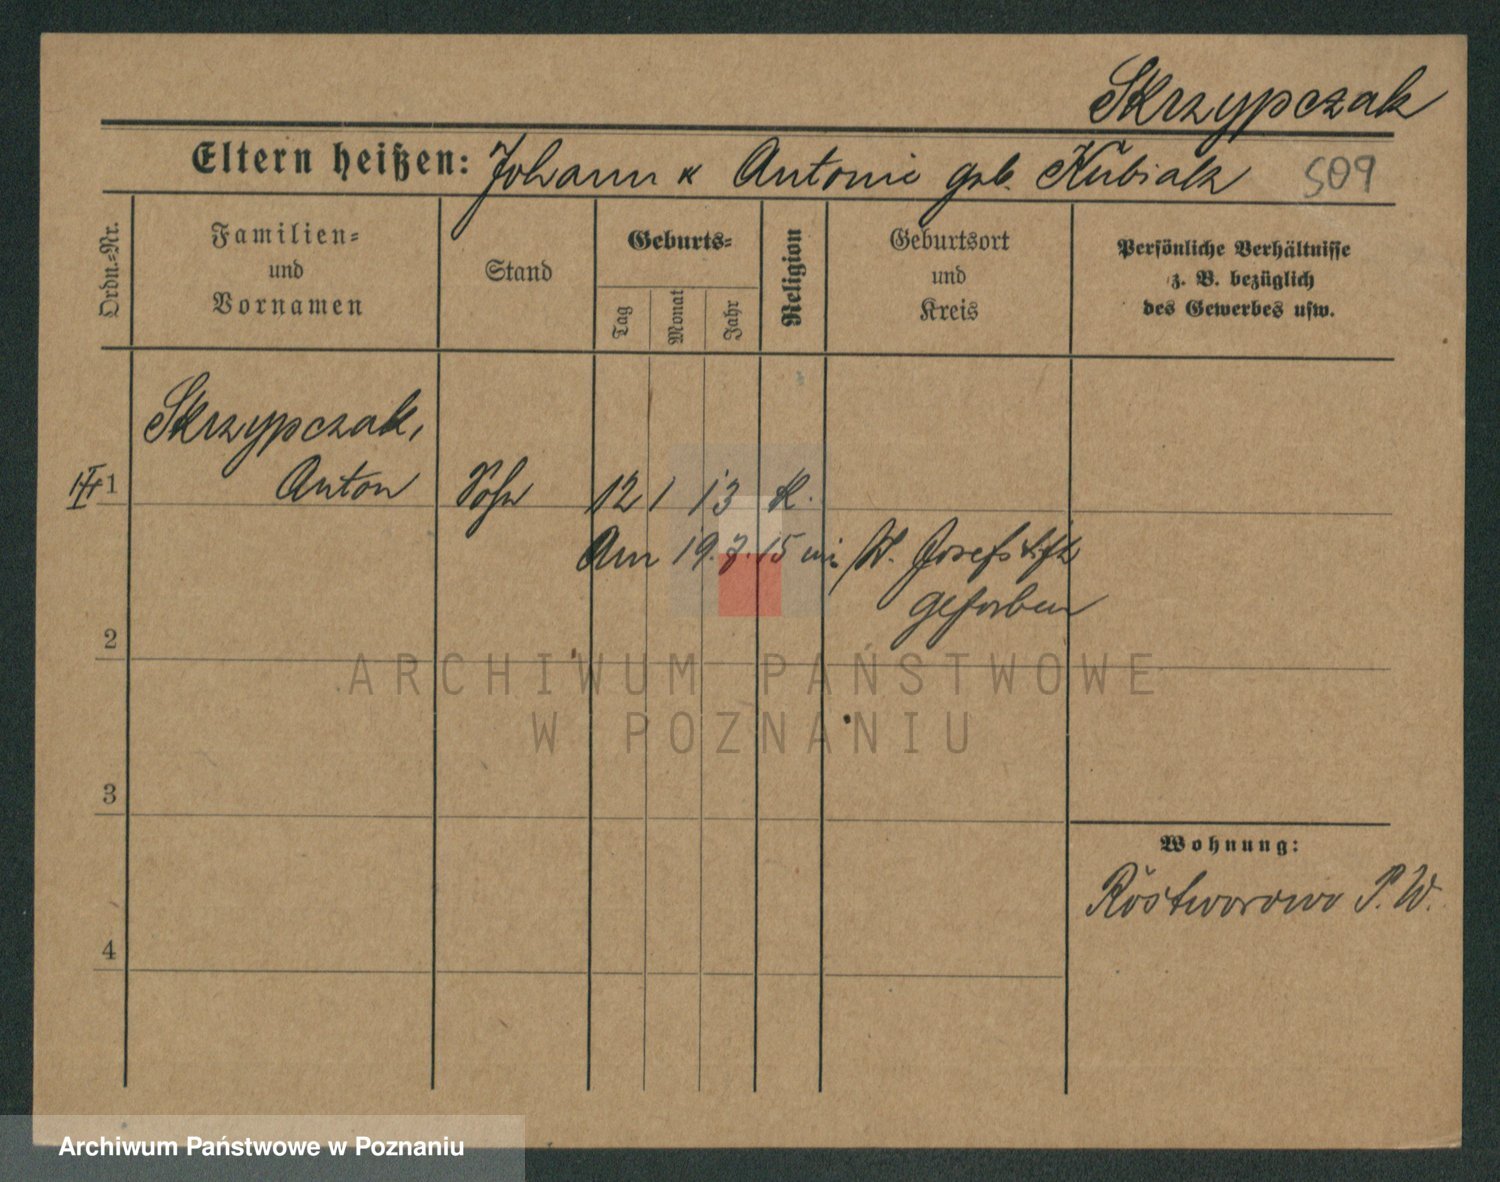 Skrzypczak
Eltern heißen: Johann u Antonie geb. Kubiak 509
Ordn.-Nr.
Familien-
und
Vornamen
Stand
Geburts-
Tag
Monat
Jahr
Religion
Geburtsort
und
Kreis
Persönliche Verhältnisse
z. B. bezüglich
des Gewerbes usw.
Skrzypczak,
1 Anton Sohn 12 1 13 K.
Am 19.7.15 im St. Josefstift
gestorben
2
3
4
Wohnung:
Rostworowo P.W.
ARCHIWUM PAŃSTWOWE
W POZNANIU
Archiwum Państwowe w Poznaniu